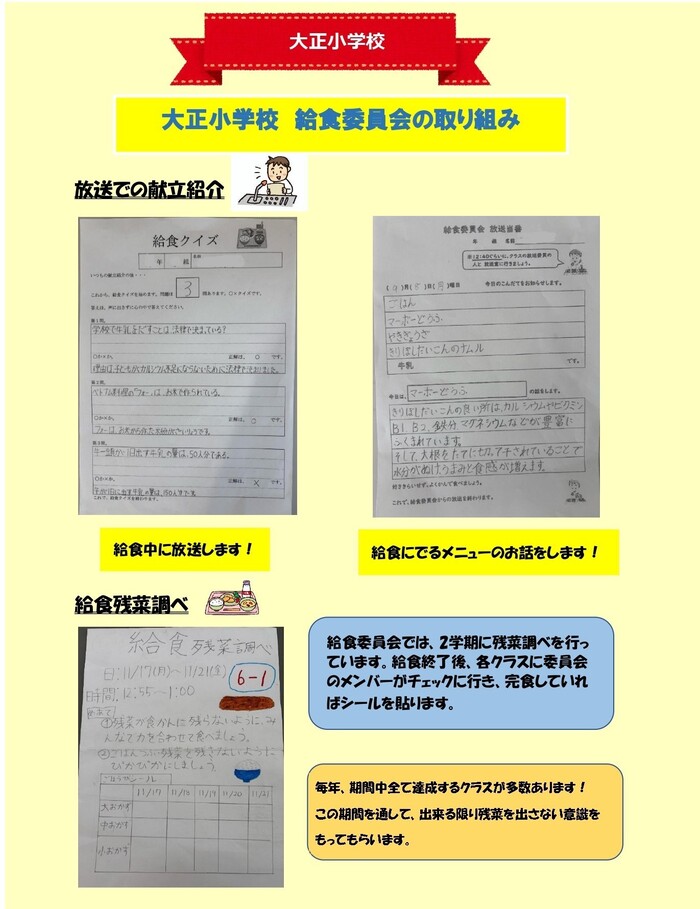 大正小学校
大正小学校 給食委員会の取り組み
放送での献立紹介
給食クイズ
年 組 名前
いつもの献立紹介の後・・・
これから、給食クイズを始めます。問題は 3 問あります。○×クイズです。
答えは、声に出さずに心の中で答えてください。
第1問。
学校で牛乳をだすことは、法律で決まっている?
○か×か。 正解は、 ○ です。
理由は子どもがカルシウム不足にならないために法律で決まりました。
第2問。
ベトナム料理の「フォー」は、お米で作られている。
○か×か。 正解は、 ○ です。
第3問。
牛一頭が1日出す牛乳の量は、50人分である。
○か×か。 正解は、 × です。
これで、給食クイズを終わります。
給食中に放送します!
給食委員会 放送当番
年 組 名前
※12:40ぐらいに、クラスの放送委員の
人と 放送室に行きましょう。
今日のこんだてをお知らせします。
ごはん
マーボーどうふ
やきぎょうざ
きりぼしだいこんのナムル
牛乳 です。
今日は、 マーボーどうふ の話をします。
きりぼしだいこんの良い所は、カルシウムやビタミン
B1 B2、鉄分 マグネシウムなどが豊富に
ふくまれています。
そして、大根をたてに切って干されていることで
水分がぬけ、うまみと食感が増えます。
好ききらいせず、よくかんで食べましょう。
これで、給食委員会からの放送を終わります。
給食にでるメニューのお話をします!
給食残菜調べ
給食残菜調べ
日:11/17(月)~11/21(金)
6-1
時間:12:55~1:00
めあて
①残菜が食かんに残らないように、み
んなで力を合わせて食べましょう。
②ごはんつぶ残菜を残さないように
ぴかぴかにしましょう。
ごほうびシール
11/17 11/18 11/19 11/20 11/21
大おかず
中おかず
小おかず
給食委員会では、2学期に残菜調べを行っ
ています。給食終了後、各クラスに委員会
のメンバーがチェックに行き、完食していれ
ばシールを貼ります。
毎年、期間中全て達成するクラスが多数あります!
この期間を通して、出来る限り残菜を出さない意識を
もってもらいます。